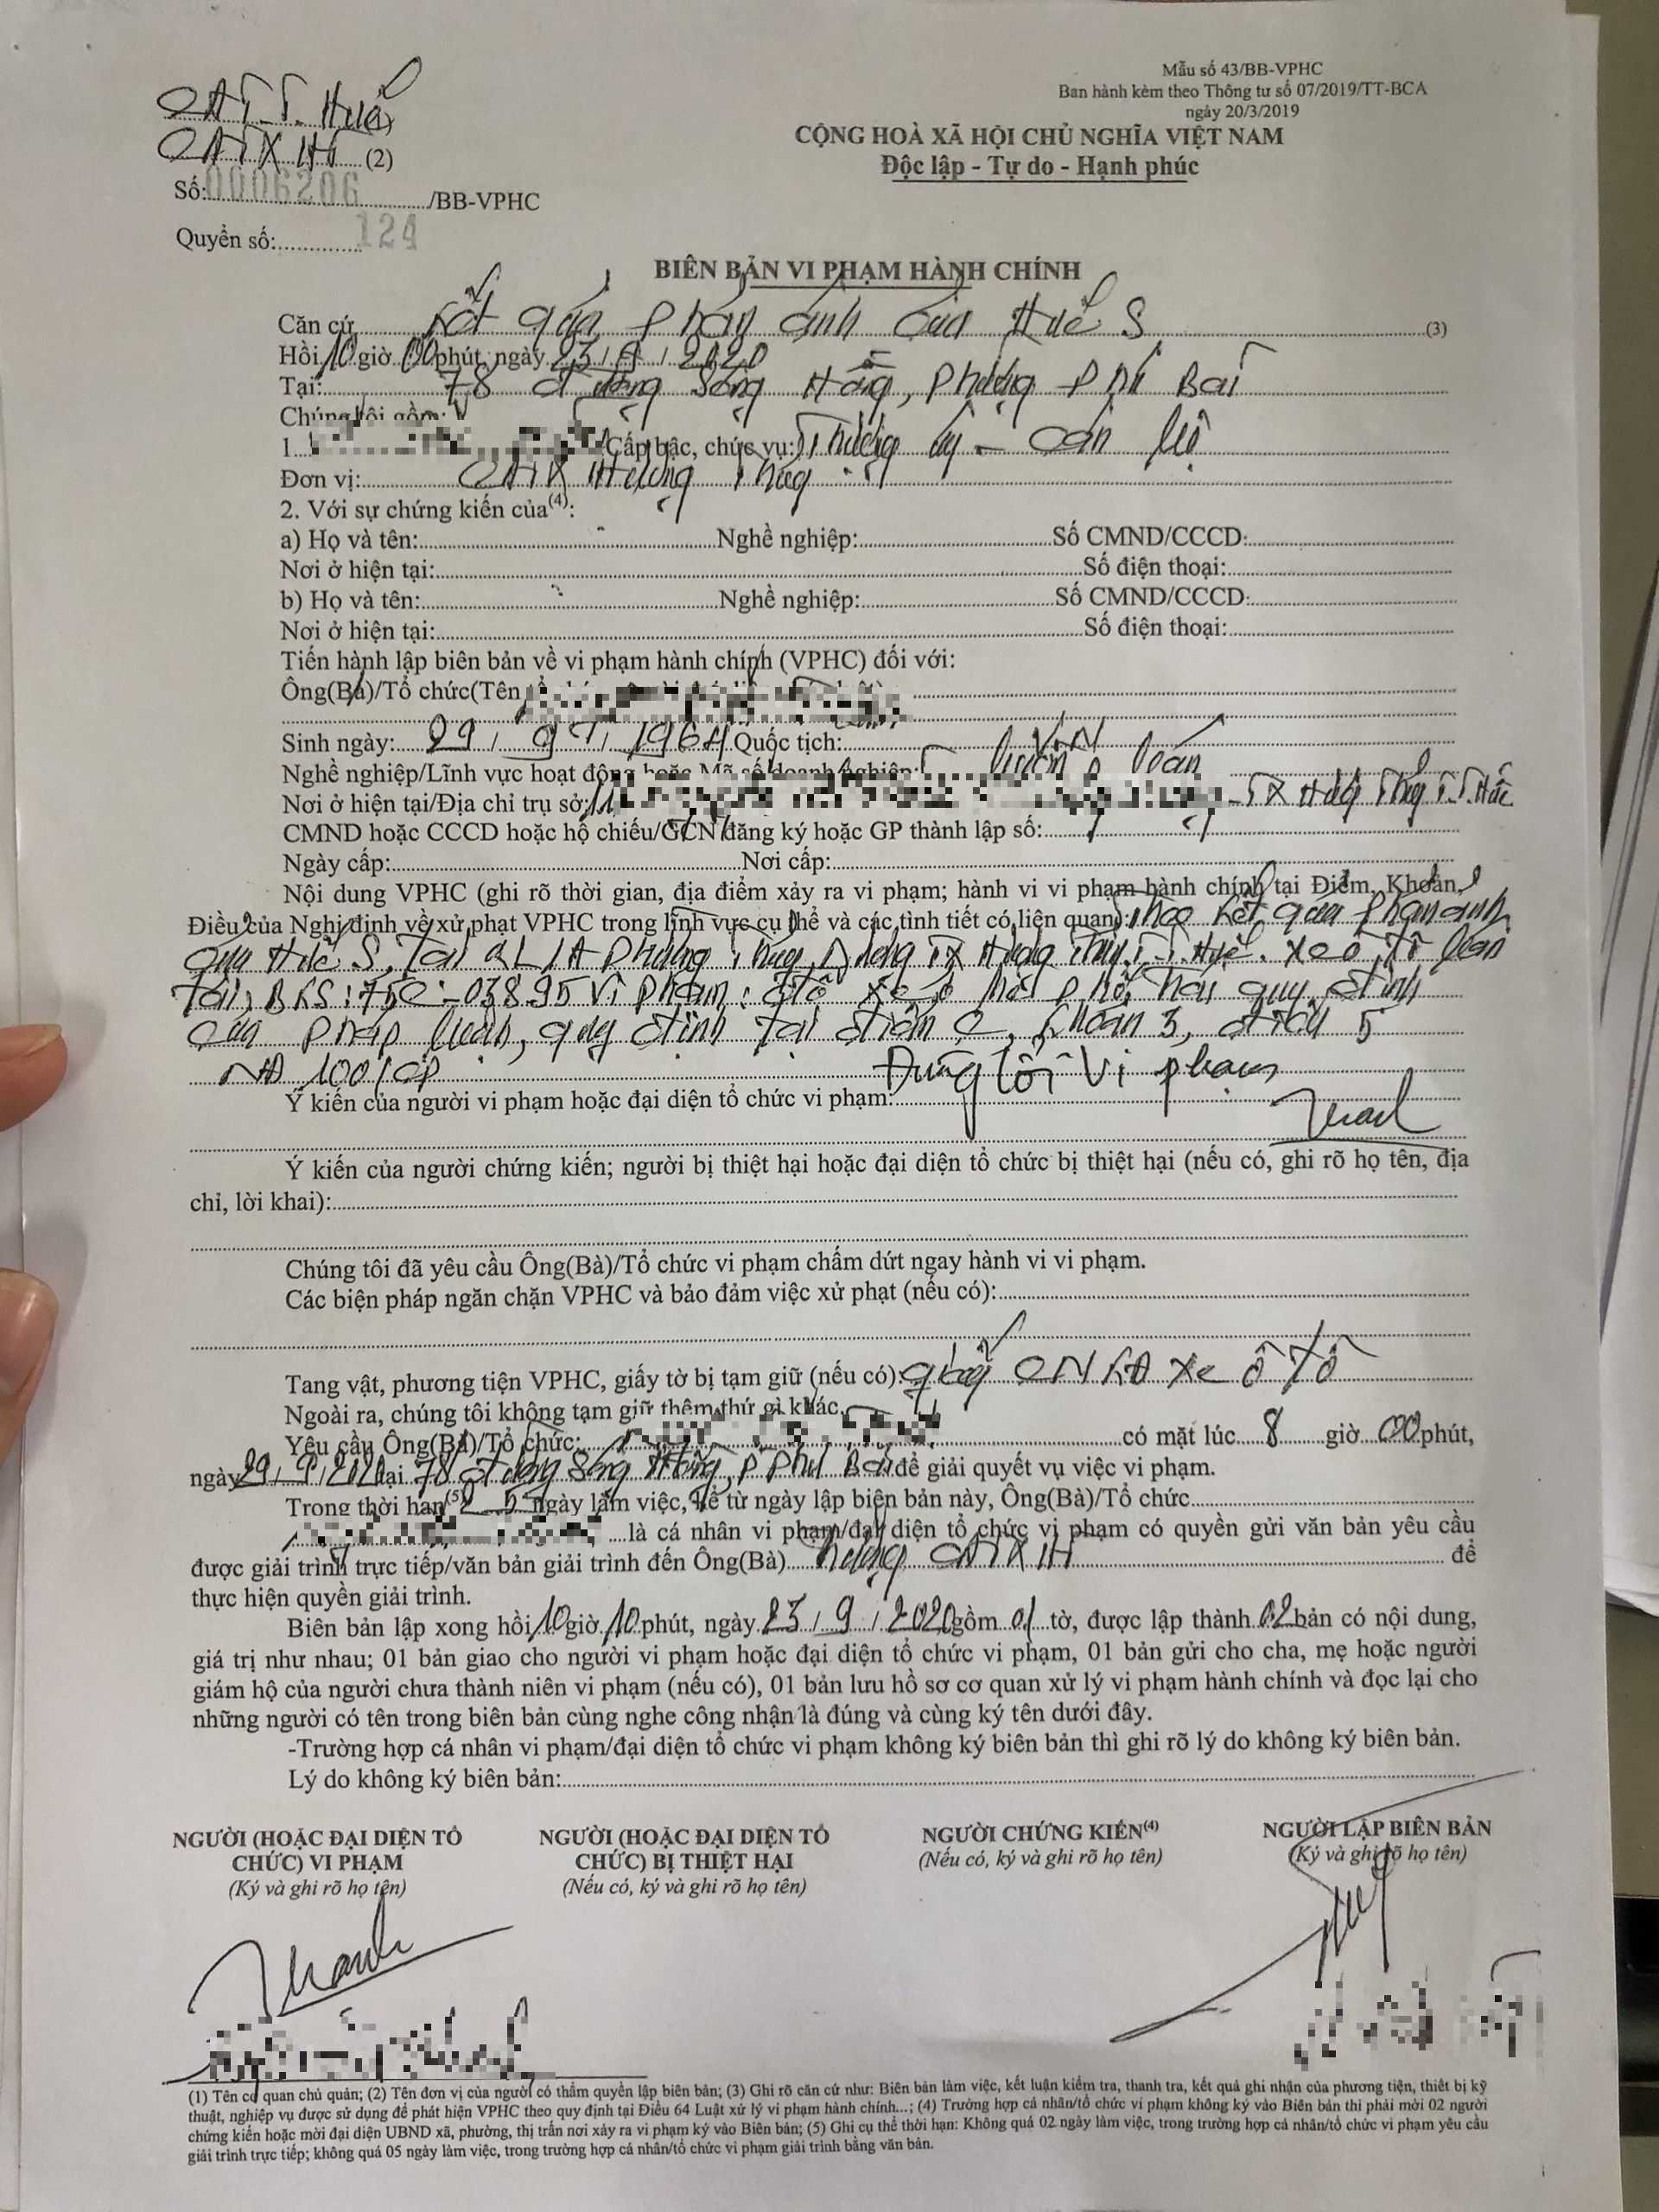 Mẫu số 43/BB-VPHC
Ban hành kèm theo Thông tư số 07/2019/TT-BCA
ngày 20/3/2019
CAT.T.Huế (1)
CATX HT (2)
CỘNG HOÀ XÃ HỘI CHỦ NGHĨA VIỆT NAM
Độc lập - Tự do - Hạnh phúc
Số: 0006206 /BB-VPHC
Quyển số: 124
BIÊN BẢN VI PHẠM HÀNH CHÍNH
Căn cứ kết quả phản ánh của Huế S (3)
Hồi 10 giờ 00 phút, ngày 23/9/2020
Tại: 78 đường Sóng Hồng, Phường Phú Bài
Chúng tôi gồm:
1. Cấp bậc, chức vụ: Thượng úy - cán bộ
Đơn vị: CATX Hương Thủy
2. Với sự chứng kiến của(4):
a) Họ và tên: Nghề nghiệp: Số CMND/CCCD:
Nơi ở hiện tại: Số điện thoại:
b) Họ và tên: Nghề nghiệp: Số CMND/CCCD:
Nơi ở hiện tại: Số điện thoại:
Tiến hành lập biên bản về vi phạm hành chính (VPHC) đối với:
Ông(Bà)/Tổ chức(Tên
Sinh ngày: 29/07/1964 Quốc tịch: VN
Nghề nghiệp/Lĩnh vực hoạt động hoặc Mã số doanh nghiệp: buôn bán
Nơi ở hiện tại/Địa chỉ trụ sở: TX Hương Thủy T.T.Huế
CMND hoặc CCCD hoặc hộ chiếu/GCN đăng ký hoặc GP thành lập số:
Ngày cấp: Nơi cấp:
Nội dung VPHC (ghi rõ thời gian, địa điểm xảy ra vi phạm; hành vi vi phạm hành chính tại Điểm, Khoản,
Điều của Nghị định về xử phạt VPHC trong lĩnh vực cụ thể và các tình tiết có liên quan): Theo kết quả phản ánh
qua Huế S, tại QL1A Phường Thủy Dương TX Hương Thủy, T.T.Huế. xe ô tô bán
tải, BKS: 75C-03895 vi phạm: đỗ xe ở hè phố trái quy định
của pháp luật, quy định tại điểm e, khoản 3, điều 5
NĐ 100/CP
Ý kiến của người vi phạm hoặc đại diện tổ chức vi phạm: Đúng lỗi vi phạm
Ý kiến của người chứng kiến; người bị thiệt hại hoặc đại diện tổ chức bị thiệt hại (nếu có, ghi rõ họ tên, địa
chỉ, lời khai):
Chúng tôi đã yêu cầu Ông(Bà)/Tổ chức vi phạm chấm dứt ngay hành vi vi phạm.
Các biện pháp ngăn chặn VPHC và bảo đảm việc xử phạt (nếu có):
Tang vật, phương tiện VPHC, giấy tờ bị tạm giữ (nếu có): giấy CNKĐ xe ô tô
Ngoài ra, chúng tôi không tạm giữ thêm thứ gì khác.
Yêu cầu Ông(Bà)/Tổ chức: có mặt lúc 8 giờ 00 phút,
ngày 29/9/2020 tại 78 đường Sóng Hồng, P Phú Bài để giải quyết vụ việc vi phạm.
Trong thời hạn(5) 2-5 ngày làm việc, kể từ ngày lập biên bản này, Ông(Bà)/Tổ chức
là cá nhân vi phạm/đại diện tổ chức vi phạm có quyền gửi văn bản yêu cầu
được giải trình trực tiếp/văn bản giải trình đến Ông(Bà) CATXHT để
thực hiện quyền giải trình.
Biên bản lập xong hồi 10 giờ 10 phút, ngày 23/9/2020 gồm 01 tờ, được lập thành 02 bản có nội dung,
giá trị như nhau; 01 bản giao cho người vi phạm hoặc đại diện tổ chức vi phạm, 01 bản gửi cho cha, mẹ hoặc người
giám hộ của người chưa thành niên vi phạm (nếu có), 01 bản lưu hồ sơ cơ quan xử lý vi phạm hành chính và đọc lại cho
những người có tên trong biên bản cùng nghe công nhận là đúng và cùng ký tên dưới đây.
-Trường hợp cá nhân vi phạm/đại diện tổ chức vi phạm không ký biên bản thì ghi rõ lý do không ký biên bản.
Lý do không ký biên bản:
NGƯỜI (HOẶC ĐẠI DIỆN TỔ
CHỨC) VI PHẠM
(Ký và ghi rõ họ tên)
NGƯỜI (HOẶC ĐẠI DIỆN TỔ
CHỨC) BỊ THIỆT HẠI
(Nếu có, ký và ghi rõ họ tên)
NGƯỜI CHỨNG KIẾN(4)
(Nếu có, ký và ghi rõ họ tên)
NGƯỜI LẬP BIÊN BẢN
(Ký và ghi rõ họ tên)
Thanh
(1) Tên cơ quan chủ quản; (2) Tên đơn vị của người có thẩm quyền lập biên bản; (3) Ghi rõ căn cứ như: Biên bản làm việc, kết luận kiểm tra, thanh tra, kết quả ghi nhận của phương tiện, thiết bị kỹ
thuật, nghiệp vụ được sử dụng để phát hiện VPHC theo quy định tại Điều 64 Luật xử lý vi phạm hành chính...; (4) Trường hợp cá nhân/tổ chức vi phạm không ký vào Biên bản thì phải mời 02 người
chứng kiến hoặc mời đại diện UBND xã, phường, thị trấn nơi xảy ra vi phạm ký vào Biên bản; (5) Ghi cụ thể thời hạn: Không quá 02 ngày làm việc, trong trường hợp cá nhân/tổ chức vi phạm yêu cầu
giải trình trực tiếp; không quá 05 ngày làm việc, trong trường hợp cá nhân/tổ chức vi phạm giải trình bằng văn bản.